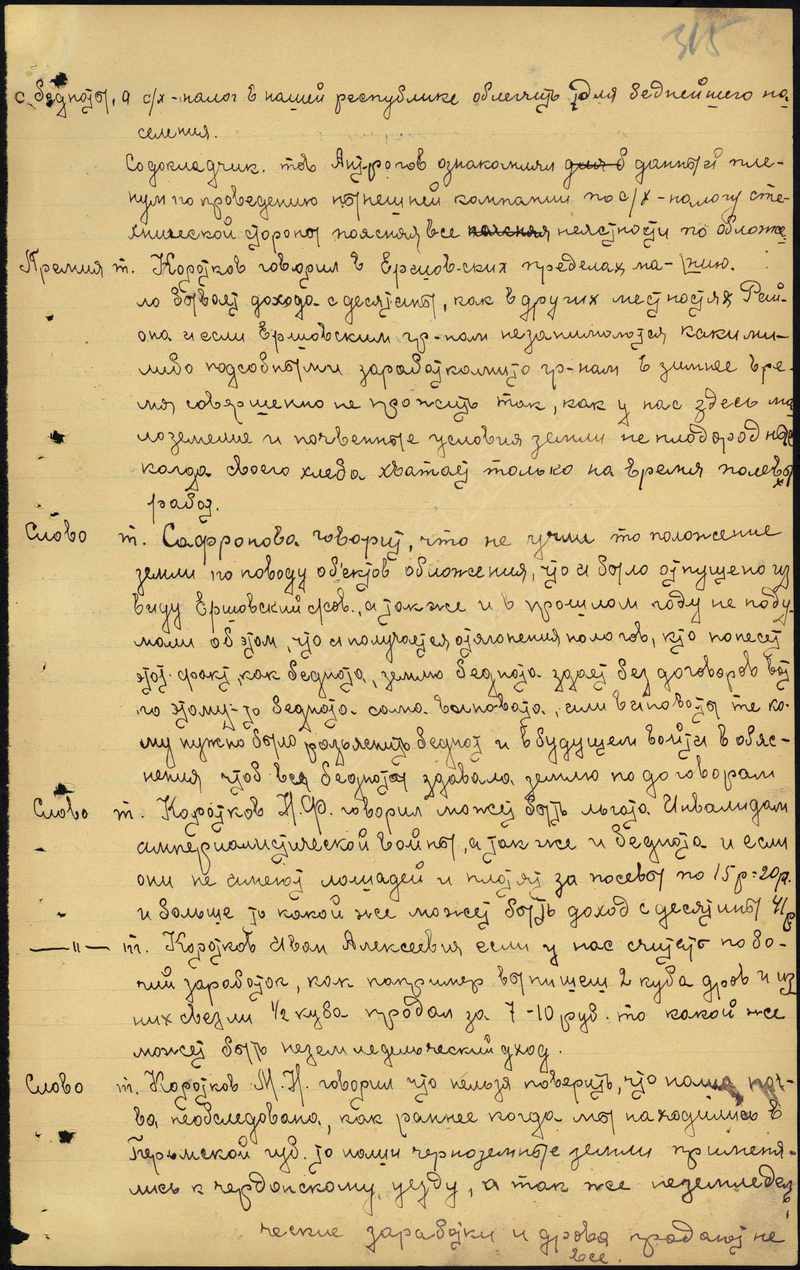 315
с бедноты, а с/х-налог в нашей республике облегчить для беднейшего на-
селения.
Содокладчик. тов Антрогов ознакомлял данный пле-
нум по проведению нынешней кампании по с/х-налогу сте-
хнической стороны поясняя все неясности по обложе
Прения т. Коротков говорил в Ершовских пределах ма- \нию.
ло бывает дохода с десятины, как в других местностях Рай-
она и если Ершовским гр-нам незаниматся какими-
либо подсобными заработками то гр-нам в зимнее вре-
мя совершенно не прожить так, как у нас здесь ма
лоземелие и почвенные условия земли не плодородные
когда своего хлеба хватает только на время полевы
х
работ.
Слово т. Сафронова говорит, что не учли то положение
земли по поводу об'ектов обложения, что и было отпущено из
виду Ершовский с/сов., а также и в прошлом году не поду-
мали об этом, что и получается отягонения налогов, кто понесет
этот факт, как беднота, землю беднота здает без договоров вот
по этому-то беднота сама виновата, или виноваты те ко-
му нужно было раз'яснить беднот и в будущем войти в об'яс-
нения чтоб вся беднота здавала землю по договорам
Слово т. Коротков И.Ф. говорил может быть льгота Инвалидам
империалистической войны, а так же и беднота и если
они не имеют лошадей и платят за посевы по 15р-20р.
и больше то какой же может быть доход с десятины 41р
—"— т. Коротков Иван Алексеевич если у нас считать побо-
чий заработок, как например выпишем 2 куба дров и из
них свезли ½ куба продал за 7-10 руб. то какой же
может быть неземледельческий доход.
Слово т. Коротков М.И. говорил что нельзя поверить, что наша поч-
ва необследована, как раннее когда мы находились в
Пермской губ. то наши черноземные земли применя-
лись к чердынскому уезду, а так же неземледел
ь-
ческие заработки и дрова продают не
все.